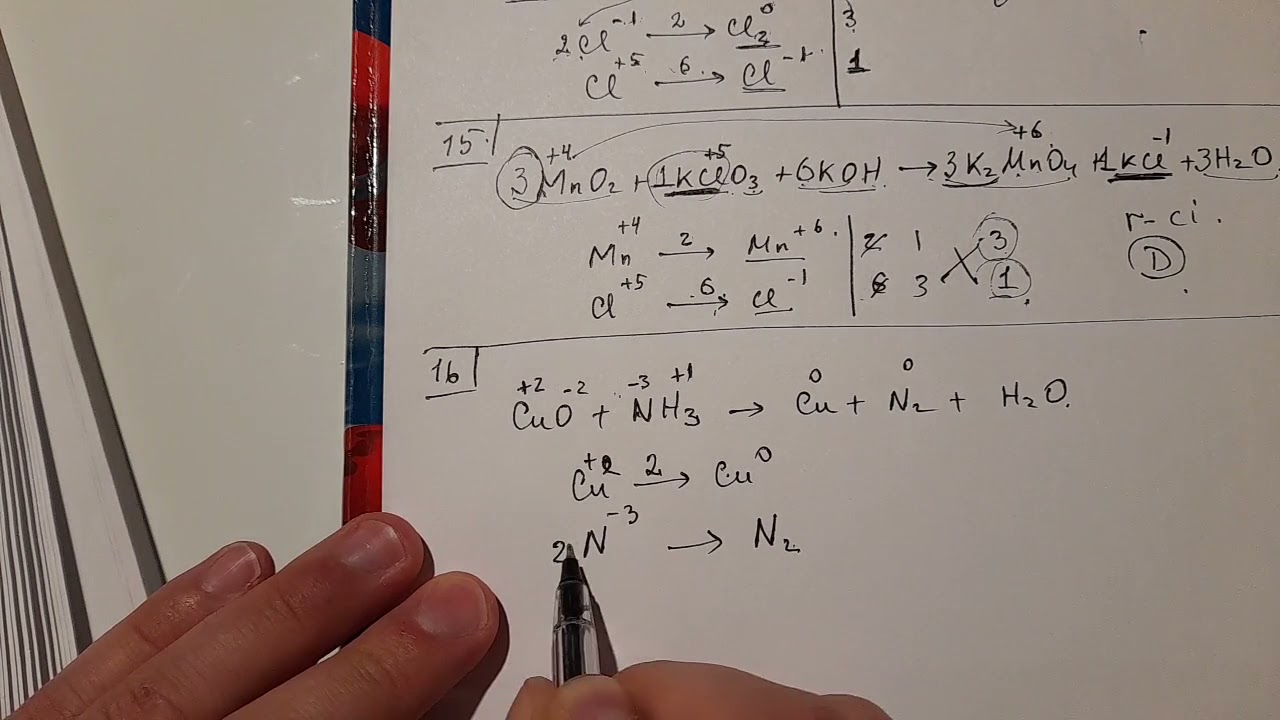 2Cl⁻¹ 2→ Cl₂⁰ | 3
Cl⁺⁵ 6→ Cl⁻¹ | 1
15.
3Mn⁺⁴O₂ + 1KCl⁺⁵O₃ + 6KOH → 3K₂Mn⁺⁶O₄ + 1KCl⁻¹ + 3H₂O
Mn⁺⁴ 2→ Mn⁺⁶ | 2 1 3
Cl⁺⁵ 6→ Cl⁻¹ | 6 3 1
r-ci.
D
16
Cu⁺²O⁻² + N⁻³H₃⁺¹ → Cu⁰ + N₂⁰ + H₂O.
Cu⁺² 2→ Cu⁰
2N⁻³ → N₂